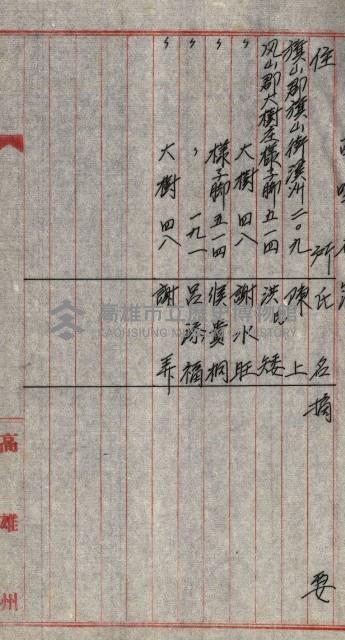 住所 氏名 摘要
旗山郡旗山街溪州二〇九 陳上
鳳山郡大樹庄檨子脚五一四 洪氏矮
〃 大樹四八 謝水旺
檨子脚五一四 侯貴桐
〃 〃 一九一 呂添福
〃 大樹四八 謝弄
高雄州
高雄市立歷史博物館
KAOHSIUNG MUSEUM OF HISTORY